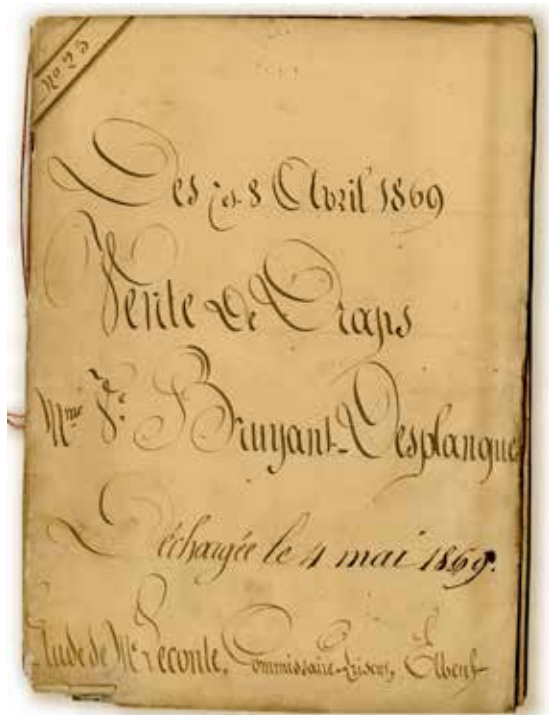 No 25
Des 7 et 8 Avril 1869
Vente De Draps
Mme Ve Bruyant-Desplanque
Déchargée le 4 mai 1869.
Etude de Me Leconte, Commissaire-Priseur, à Elbeuf